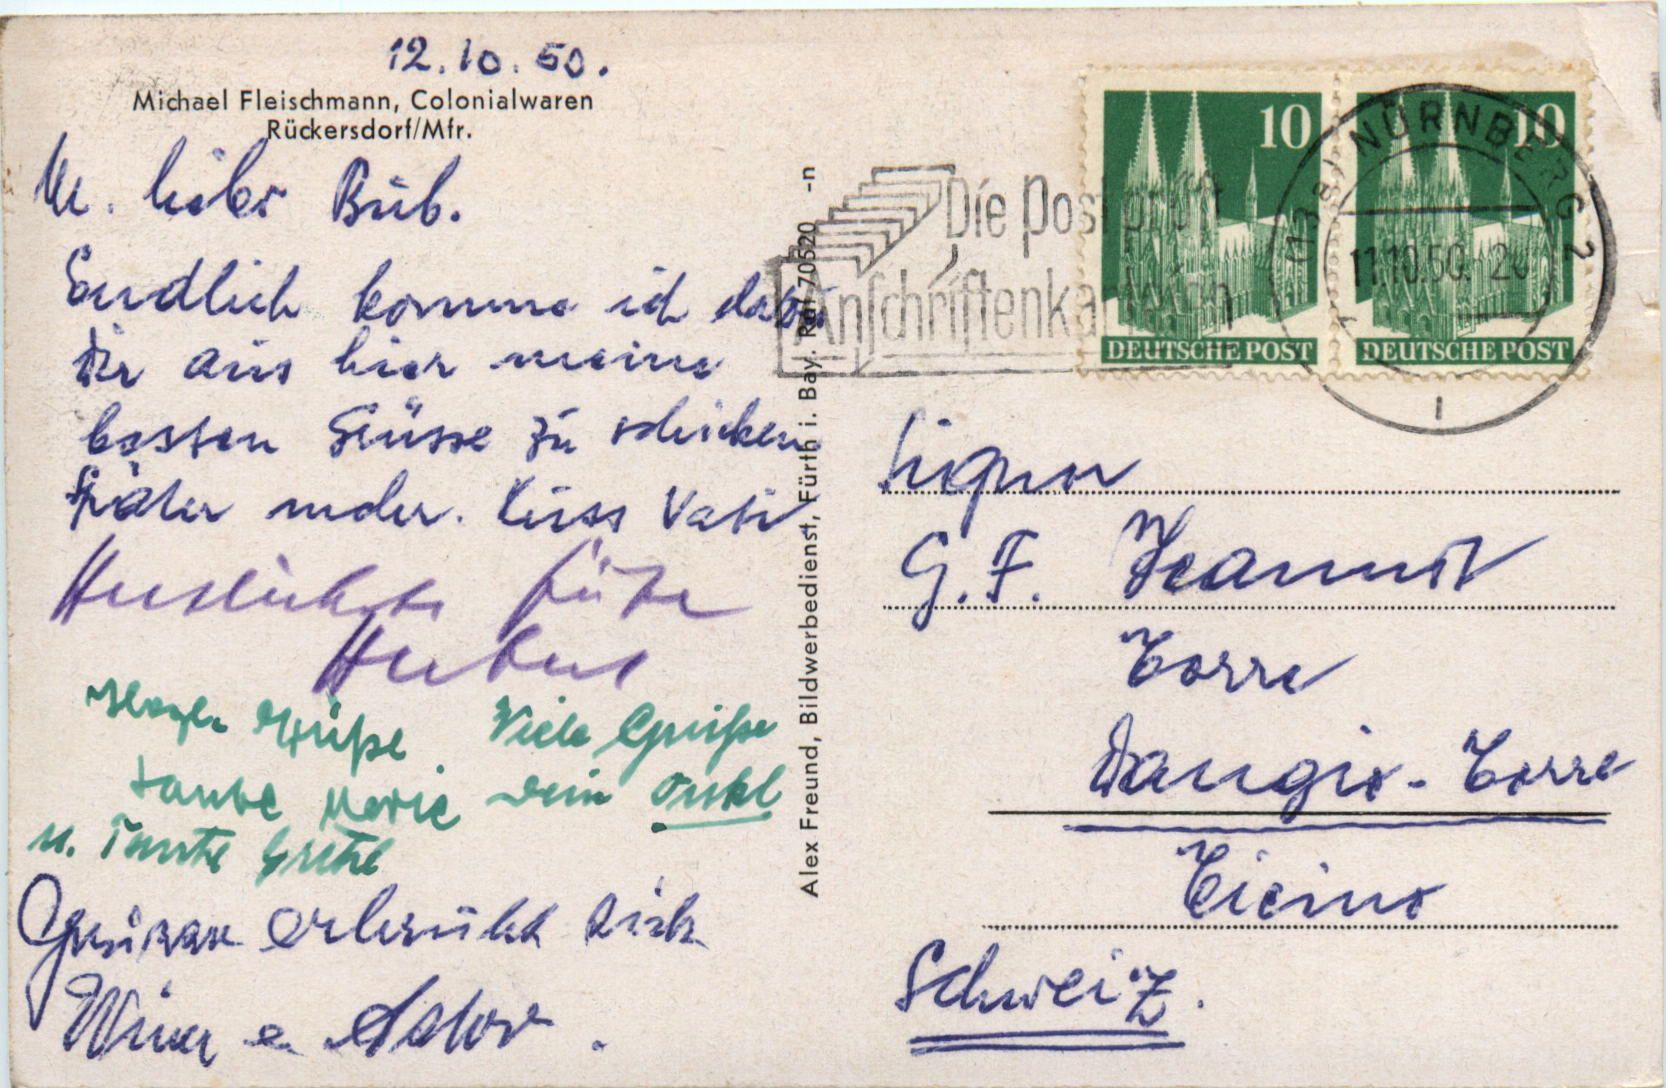 12.10.50.
Michael Fleischmann, Colonialwaren
Rückersdorf/Mfr.
M. lieber Bub.
Endlich komme ich dazu
Dir aus hier meine
besten Grüsse zu schicken
Später mehr. Kuss Vati
Herzlichste Grüße
Viele Grüße
Tante Marie dein Onkel
u. Tante Gretel
Alex Freund, Bildwerbedienst, Fürth i. Bay. Ruf 70520 -n
Die Post prüft
Anschriftenkarteien
10
DEUTSCHE POST
10
DEUTSCHE POST
(13a) NÜRNBERG 2
11.10.50. 20
Signor
G. F. Jeannot
Torre
Dangio-Torre
Ticino
Schweiz.